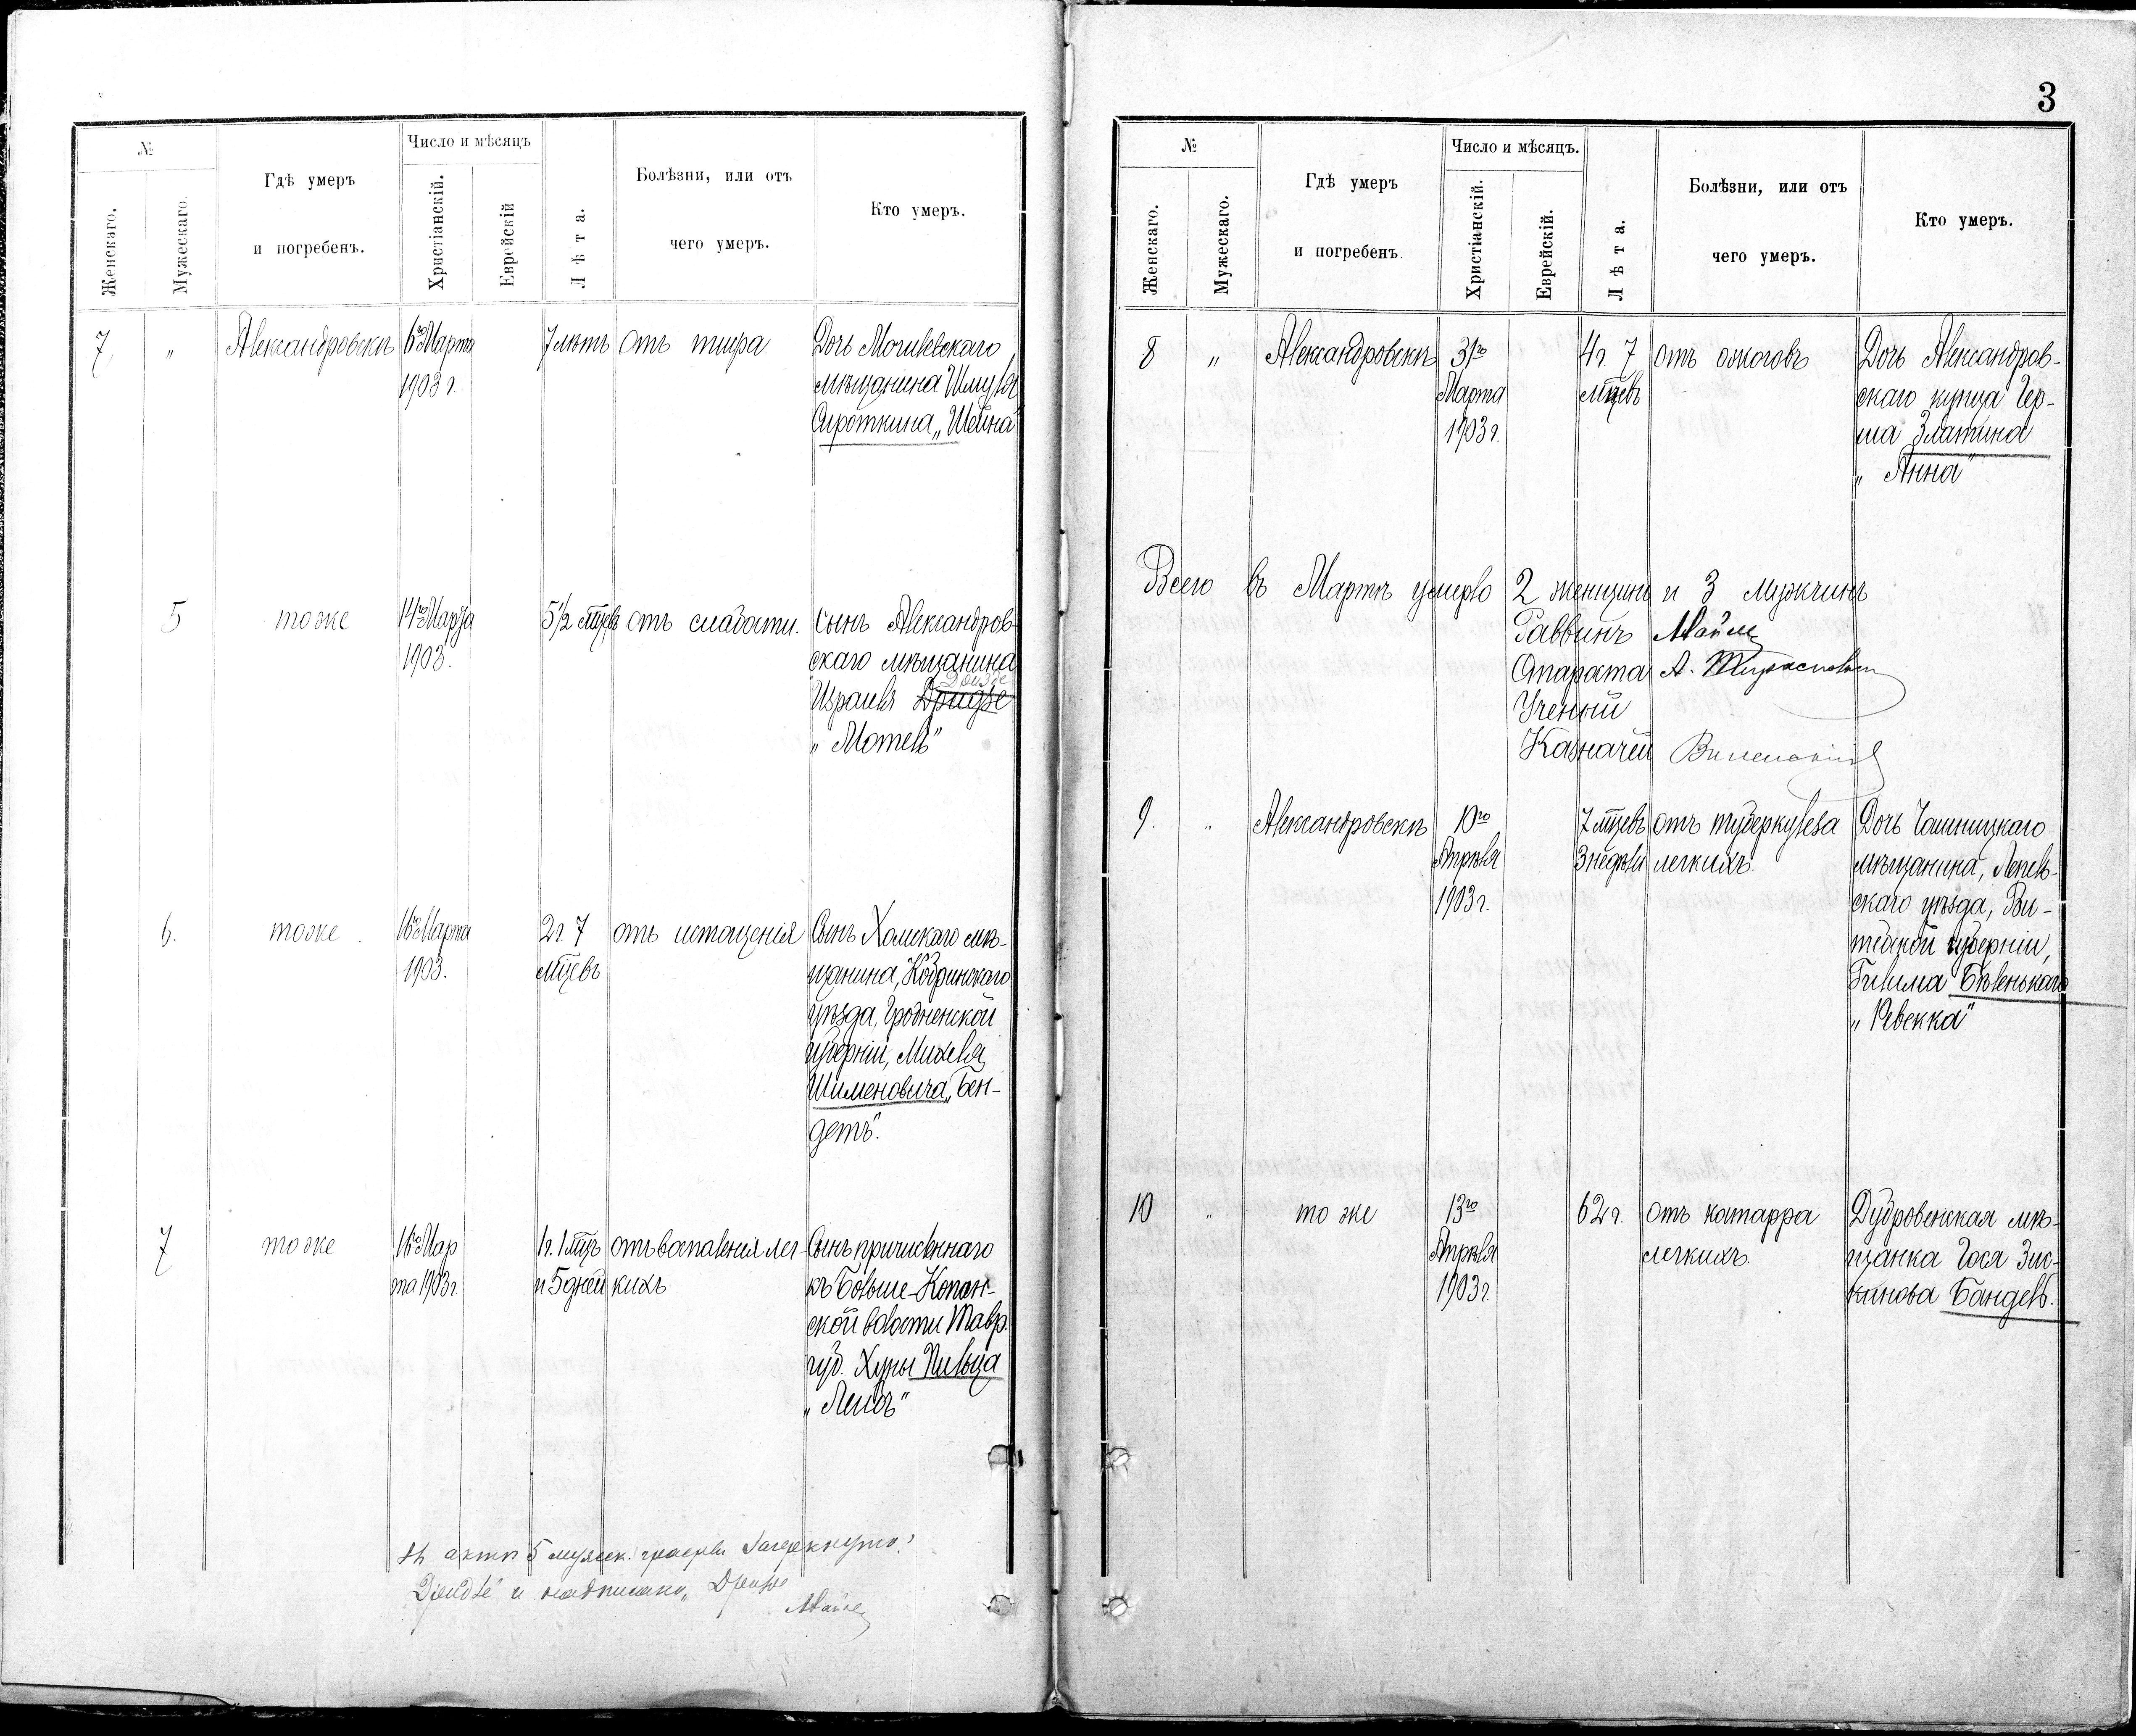 №
Женскаго.
Мужескаго.
Гдѣ умеръ
и погребенъ.
Число и мѣсяцъ
Христіанскій.
Еврейскій
Лѣта.
Болѣзни, или отъ
чего умеръ.
Кто умеръ.
7
"
Александровскъ
6го Марта
1903 г.
7 лѣтъ
отъ тифа.
Дочь Могилевскаго
мѣщанина Шмуля
Сироткина „Шейна"
5
тоже
14го Марта
1903.
5½ мцевъ
отъ слабости.
Сынъ Александров-
скаго мѣщанина
Израиля Дридзе
„Мотель"
6.
тоже
16го Марта
1903.
2 г. 7
мцевъ
отъ истощенія
Сынъ Холмскаго мѣ-
щанина, Кобринскаго
уѣзда, Гродненской
губерніи, Михеля
Шименовича „Бен-
детъ".
7
тоже
16го Мар
та 1903 г.
1 г. 1 мцъ
и 5 дней
отъ воспаленія лег-
кихъ
Сынъ причисленнаго
къ Больше-Копан-
ской волости Тавр.
губ. Хуны Пильца
„Лейбъ"
Въ актѣ 5 мужск. графы зачеркнуто:
и надписано „Дризе
№
Женскаго.
Мужескаго.
Гдѣ умеръ
и погребенъ.
Число и мѣсяцъ.
Христіанскій.
Еврейскій.
Лѣта.
Болѣзни, или отъ
чего умеръ.
Кто умеръ.
3
8
"
Александровскъ
31го
Марта
1903 г.
4 г. 7
мцевъ
отъ ожоговъ
Дочь Александров-
скаго купца Гер-
ша Златина
„Анна"
Всего въ Мартѣ умерло 2 женщинъ и 3 мужчинъ
Раввинъ
Староста А.
Ученый
Казначей
9.
"
Александровскъ
10го
Апрѣля
1903 г.
7 мцевъ
3 недѣли
отъ туберкулеза
легкихъ.
Дочь Чашницкаго
мѣщанина, Лепель-
скаго уѣзда, Ви-
тебской губерніи,
Гилима Бѣленькаго
„Ревекка"
10
"
то же
13го
Апрѣля
1903 г.
62 г.
отъ катарра
легкихъ.
Дубровенская мѣ-
щанка Гося Зис-
канова Бандель.